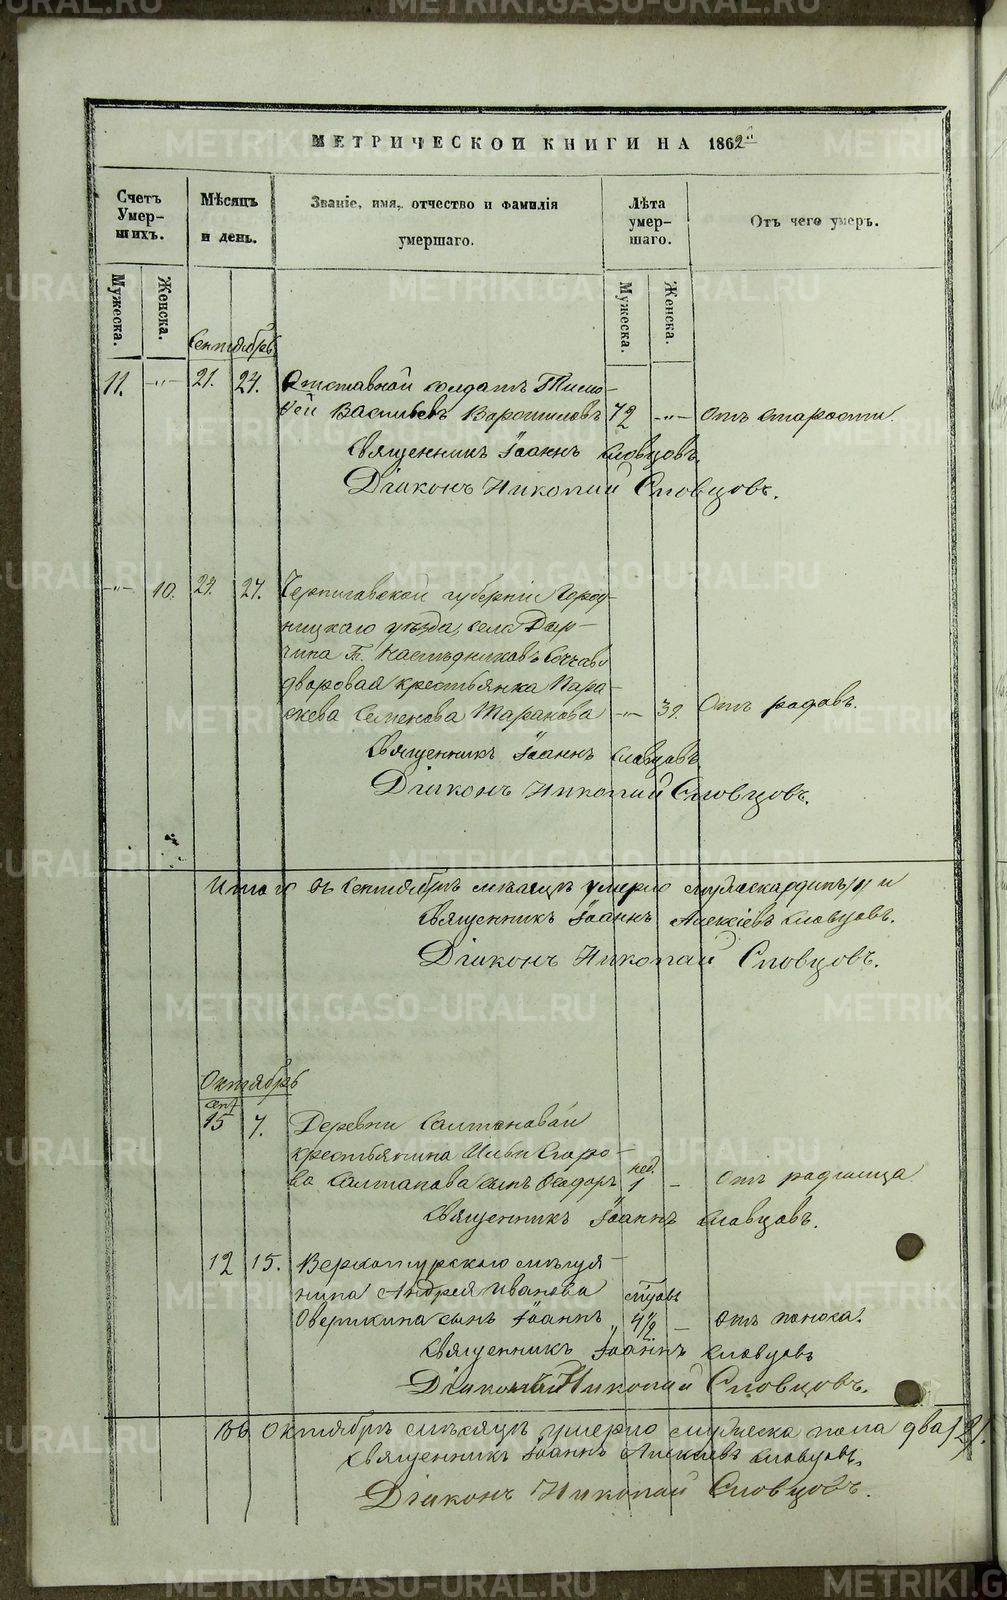 МЕТРИЧЕСКОЙ КНИГИ НА 1862й
Счетъ Умер-шихъ.
Мѣсяцъ и день.
Званіе, имя, отчество и фамилія умершаго.
Лѣта умер-шаго.
Отъ чего умеръ.
Мужеска.
Женска.
Мужеска.
Женска.
Сентябрь
11. -"- 21. 24. Отставной солдатъ Тимо-
фей Васильевъ Ворошиловъ 72 -"- Отъ старости.
Священникъ Іоаннъ Словцовъ.
Діаконъ Николай Словцовъ.
-"- 10. 24. 27. Черниговской губерніи Город-
ницкаго уѣзда, села Дыр-
чина Наслѣдниковъ
дворовая крестьянка Пара-
скева Семенова Таранова -"- 39. Отъ родовъ.
Священникъ Іоаннъ Словцовъ
Діаконъ Николай Словцовъ.
Итого въ Сентябрѣ мѣсяцѣ умерло мужеска одинъ /1/ и
Священникъ Іоаннъ Алексіевъ Словцовъ.
Діаконъ Николай Словцовъ.
Октябрь
сент
15 7. Деревни Салтановой
крестьянина Ильи Егоро-
ва Салтанова сынъ Ѳеодоръ нед. 1 - Отъ родимца
Священникъ Іоаннъ Словцовъ.
12 15. Верхотурскаго мѣщя-
нина Андрея Иванова
Оверкина сынъ Іоаннъ 4½ - Отъ поноса.
Священникъ Іоаннъ Словцовъ
Діаконъ Николай Словцовъ.
Въ Октябрѣ мѣсяцѣ умерло мужеска пола два /2/.
Священникъ Іоаннъ Алексіевъ Словцовъ.
Діаконъ Николай Словцовъ.
METRIKI.GASO-URAL.RU